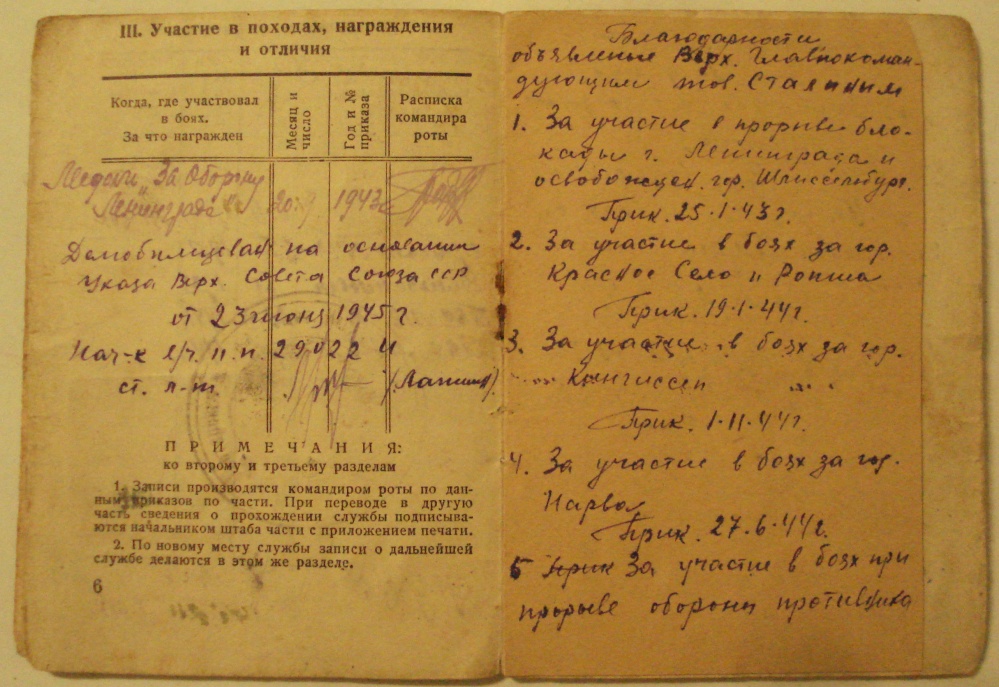 III. Участие в походах, награждения
и отличия
Когда, где участвовал
в боях.
За что награжден
Месяц и
число
Год и №
приказа
Расписка
командира
роты
Медаль „За Оборону
Ленинграда“ 1943
Демобилизован на основании
Указа Верх. Совета Союза ССР
от 23 июня 1945 г.
Нач-к п.п.
ст. л-т
ПРИМЕЧАНИЯ:
ко второму и третьему разделам
1. Записи производятся командиром роты по дан-
ным приказов по части. При переводе в другую
часть сведения о прохождении службы подписыва-
ются начальником штаба части с приложением печати.
2. По новому месту службы записи о дальнейшей
службе делаются в этом же разделе.
6
Благодарности
объявленые Верх. Главнокоман-
дующим тов. Сталиным
1. За участие в прорыве бло-
кады г. Ленинграда и
освобожден. гор. Шлиссельбург.
Прик. 25.1.43г.
2. За участие в боях за гор.
Красное Село и Ропша
Прик. 19.1.44г.
3. За участие в боях за гор.
Кингиссеп
Прик. 1.II.44г.
4. За участие в боях за гор.
Нарва
Прик. 27.6.44г.
5 Прик За участие в боях при
прорыве обороны противника